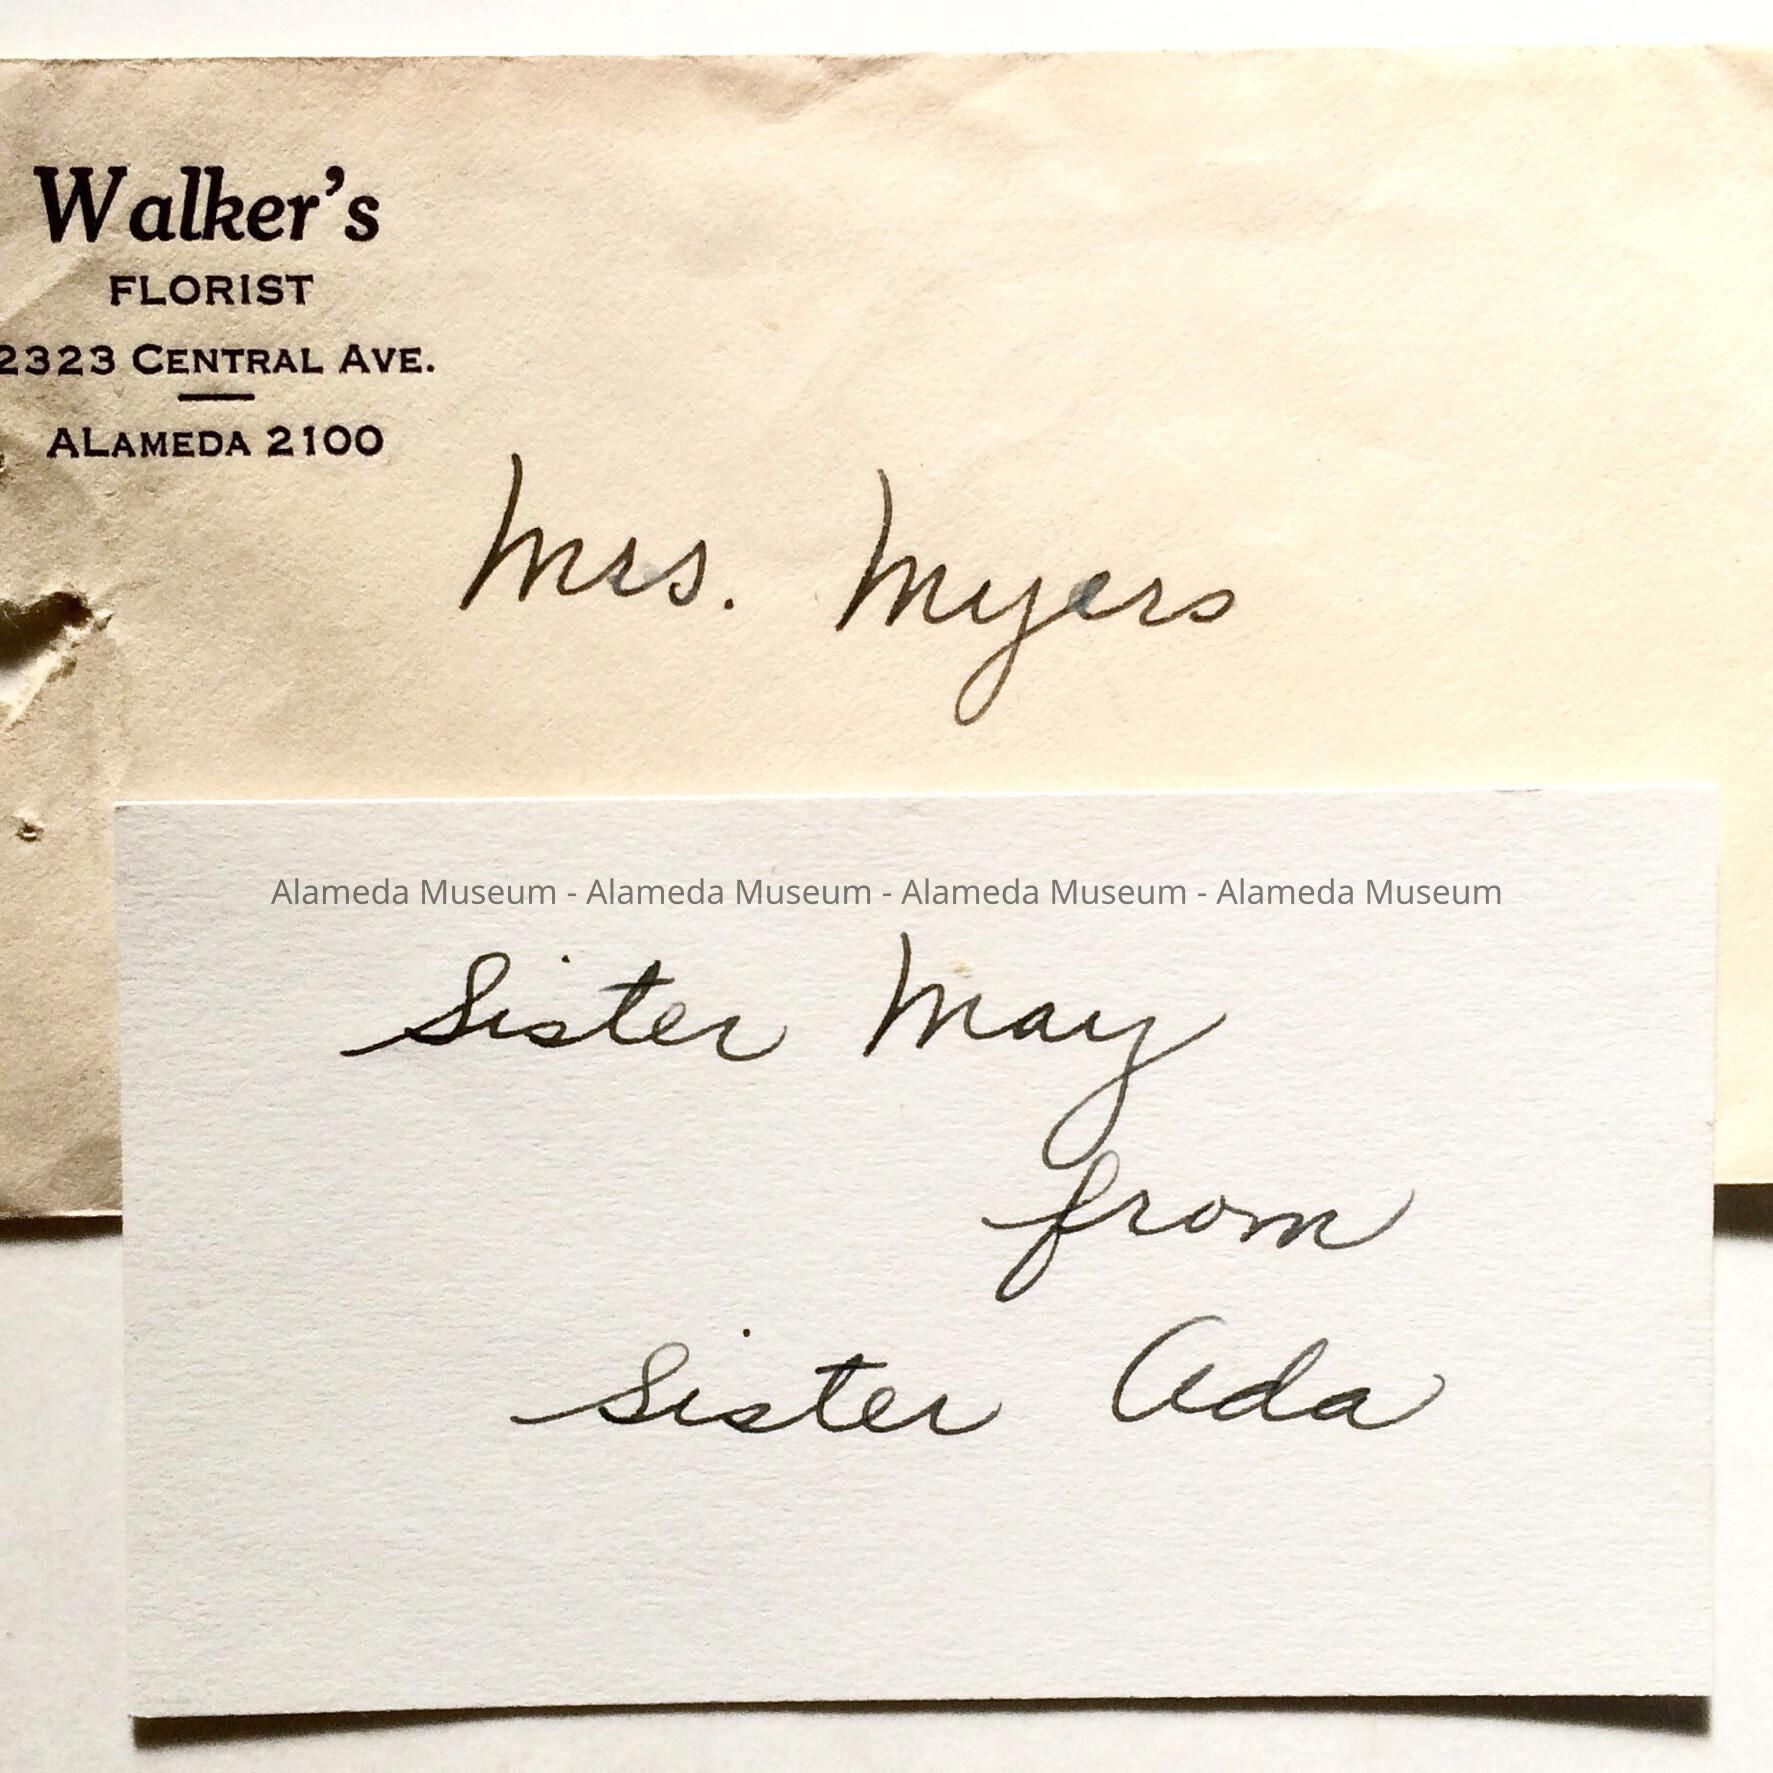 Walker's
FLORIST
2323 CENTRAL AVE.
ALAMEDA 2100
Mrs. Myers
Alameda Museum - Alameda Museum - Alameda Museum - Alameda Museum
Sister May
from
Sister Ada